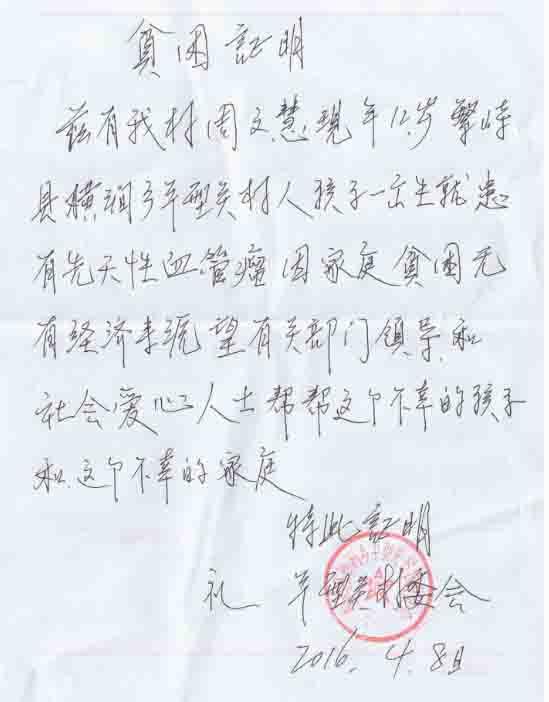 贫困証明
兹有我村周文慧现年12岁繁峙
县横涧乡平型关村人孩子一出生就患
有先天性血管瘤因家庭贫困无
有经济来源望有关部门领导和
社会爱心人士帮帮这个不幸的孩子
和这个不幸的家庭
特此証明
礼 平型关村委会
2016.4.8日